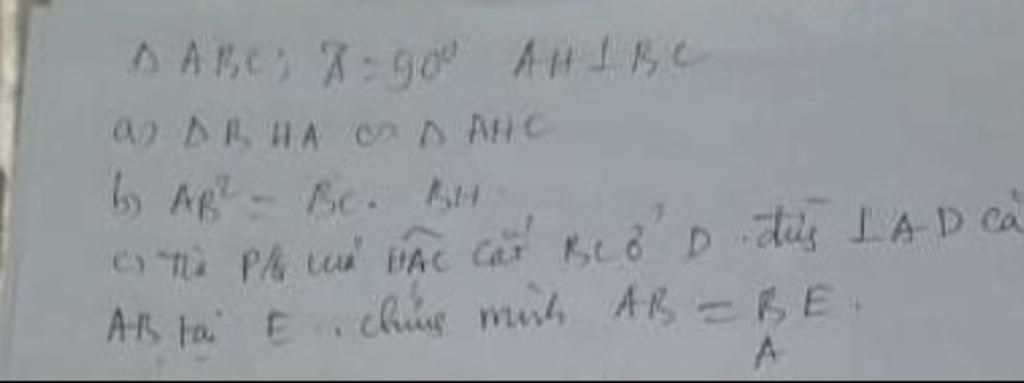 Δ ABC; Â = 90⁰ AH ⊥ BC
a) Δ BHA ∽ Δ AHC
b) AB² = BC. BH
c) Từ P/G của HÂC cắt BC ở D. đg ⊥ AD cắ
AB tại E. chứng minh AB = BE.
A